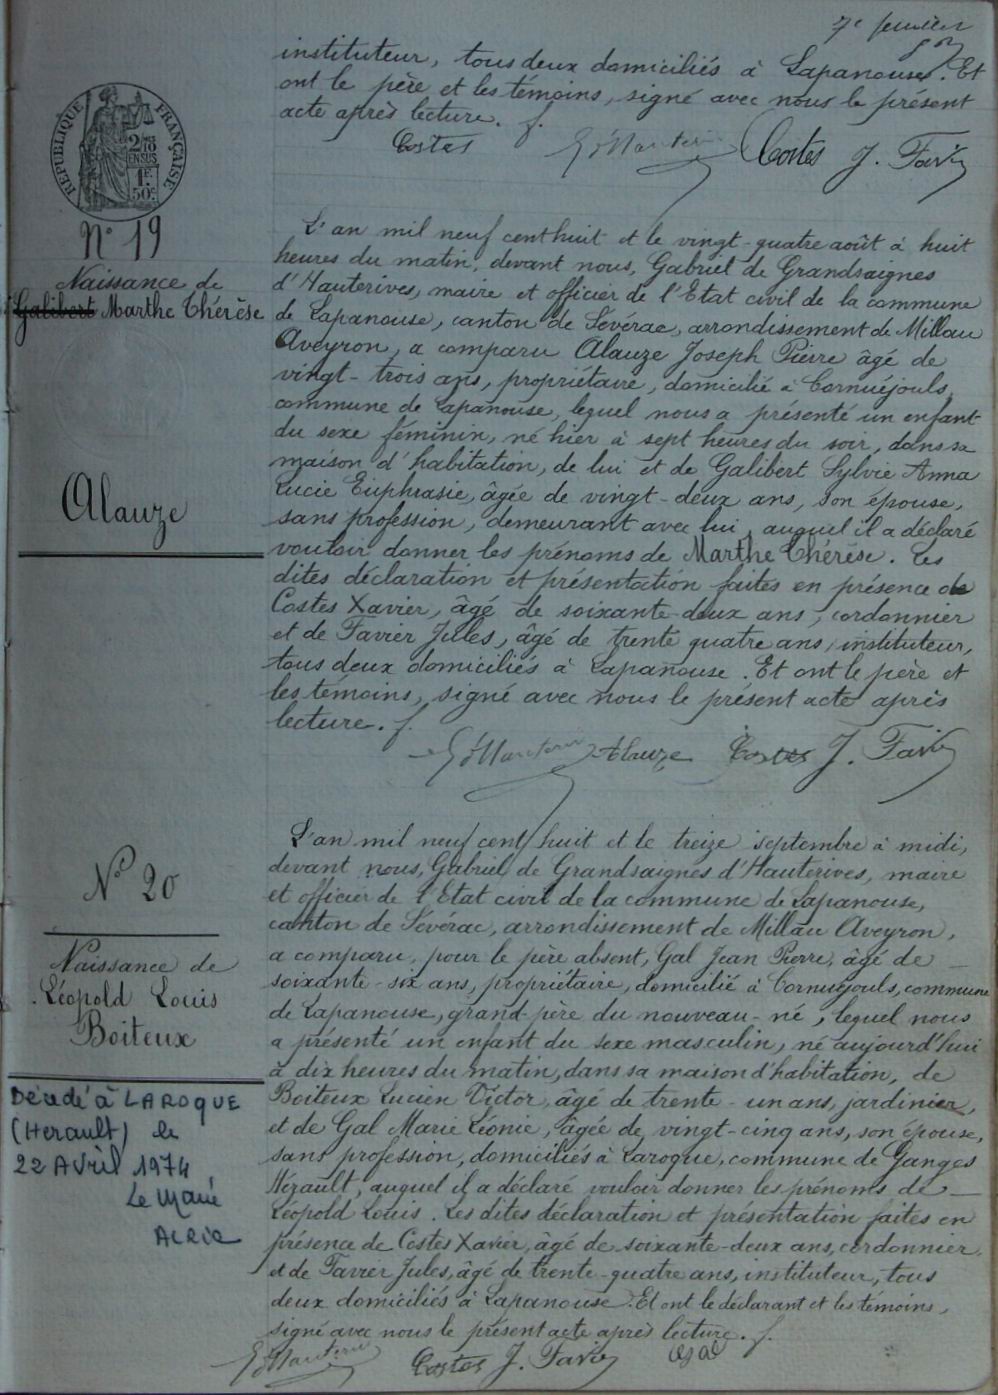 7e feuillet
instituteur, tous deux domiciliés à Lapanouse. Et
ont le père et les témoins, signé avec nous le présent
acte après lecture. f.
Costes Costes J. Favier
RÉPUBLIQUE FRANÇAISE
2/10 EN SUS
1F. 50c.
N° 19
Naissance de
Galibert Marthe Thérèse
Alauze
L'an mil neuf cent huit et le vingt-quatre août à huit
heures du matin, devant nous, Gabriel de Grandsaignes
d'Hauterives, maire et officier de l'Etat civil de la commune
de Lapanouse, canton de Sévérac, arrondissement de Millau
Aveyron, a comparu Alauze Joseph Pierre âgé de
vingt-trois ans, propriétaire, domicilié à Cornuéjouls,
commune de Lapanouse, lequel nous a présenté un enfant
du sexe féminin, né hier à sept heures du soir, dans sa
maison d'habitation, de lui et de Galibert Sylvie Anna
Lucie Euphrasie, âgée de vingt-deux ans, son épouse,
sans profession, demeurant avec lui, auquel il a déclaré
vouloir donner les prénoms de Marthe Thérèse. Les
dites déclaration et présentation faites en présence de
Costes Xavier, âgé de soixante-deux ans, cordonnier
et de Favier Jules, âgé de trente quatre ans, instituteur,
tous deux domiciliés à Lapanouse. Et ont le père et
les témoins, signé avec nous le présent acte après
lecture. f.
G d'Hauterives Alauze Costes J. Favier
N° 20
Naissance de
Léopold Louis
Boiteux
Décédé à LAROQUE
(Herault) le
22 Avril 1974
Le Maire
L'an mil neuf cent huit et le treize septembre à midi,
devant nous, Gabriel de Grandsaignes d'Hauterives, maire
et officier de l'Etat civil de la commune de Lapanouse,
canton de Sévérac, arrondissement de Millau Aveyron,
a comparu, pour le père absent, Gal Jean Pierre, âgé de
soixante-six ans, propriétaire, domicilié à Cornuéjouls, commune
de Lapanouse, grand-père du nouveau-né, lequel nous
a présenté un enfant du sexe masculin, né aujourd'hui
à dix heures du matin, dans sa maison d'habitation, de
Boiteux Lucien Victor, âgé de trente-un ans, jardinier,
et de Gal Marie Léonie, âgée de vingt-cinq ans, son épouse,
sans profession, domiciliés à Laroque, commune de Ganges
Hérault, auquel il a déclaré vouloir donner les prénoms de
Léopold Louis. Les dites déclaration et présentation faites en
présence de Costes Xavier, âgé de soixante-deux ans, cordonnier
et de Favier Jules, âgé de trente-quatre ans, instituteur, tous
deux domiciliés à Lapanouse. Et ont le déclarant et les témoins,
signé avec nous le présent acte après lecture. f.
G d'Hauterives Costes J. Favier Gal